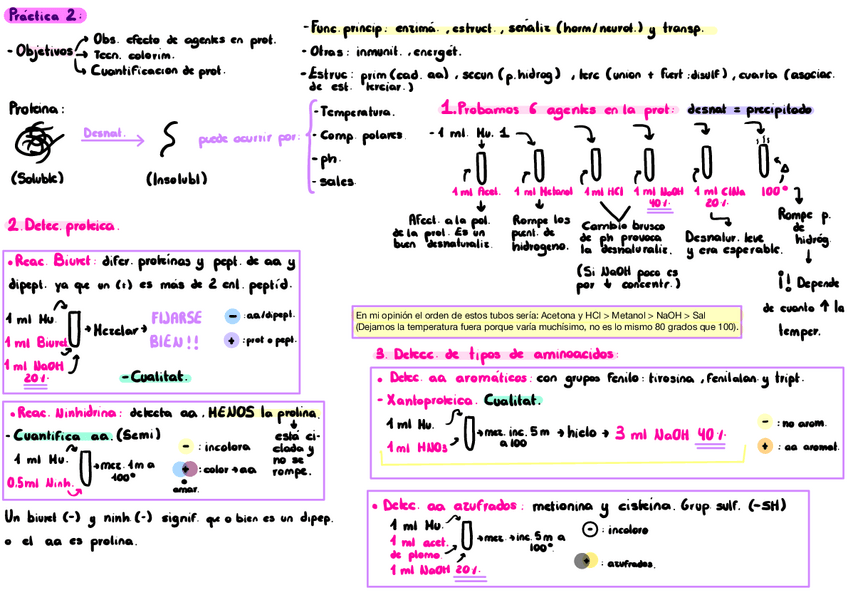 Práctica 2:
- Objetivos
Obs. efecto de agentes en prot.
Tecn. colorim.
Cuantificacion de prot.
- Func. princip: enzimá. , estruct., señaliz (horm/neurot.) y transp.
- Otras: inmunit. , energét.
- Estruc: prim (cad. aa) , secun (p.hidrog) , terc (union + fuert :disulf) , cuarta (asociac.
de est. terciar.)
Proteina:
Desnat.
puede ocurrir por:
(Soluble)
(Insolubl)
- Temperatura.
- Comp. polares
- ph.
- sales.
1.Probamos 6 agentes en la prot: desnat = precipitado
- 1 ml. Hu. 1
1 ml Acet.
1 ml Metanol
1 ml HCl
1 ml NaOH
40%
1 ml ClNa
20%
100°
Afect. a la pol.
de la prot. Es un
buen desnaturaliz.
Rompe los
puent. de
hidrogeno.
Cambio brusco
de ph provoca
la desnaturaliz.
(Si NaOH poco es
por ↓ concentr.)
Desnatur. leve
y era esperable.
Rompe p.
de
hidróg.
¡! Depende
de cuanto ↑ la
temper.
En mi opinión el orden de estos tubos sería: Acetona y HCl > Metanol > NaOH > Sal
(Dejamos la temperatura fuera porque varía muchísimo, no es lo mismo 80 grados que 100).
2. Detec. proteica.
• Reac. Biuret: difer. proteinas y pept. de aa y
dipept. ya que un (+) es más de 2 enl. peptíd.
1 ml Hu.
1 ml Biuret
1 ml NaOH
20%
→ Mezclar →
FIJARSE
BIEN!!
- : aa/dipept.
+ : prot o pept.
- Cualitat.
• Reac. Ninhidrina: detecta aa, MENOS la prolina.
- Cuantifica aa. (Semi)
1 ml Hu.
0.5ml Ninh.
→ mez. 1m a
100°
- : incolora
+ : color → aa
amar.
está ci-
clada y
no se
rompe.
Un biuret (-) y ninh (-) signif. que o bien es un dipep.
o el aa es prolina.
3. Detecc. de tipos de aminoacidos:
• Detec. aa aromáticos: con grupos fenilo: tirosina , fenilalan. y tript.
- Xantoproteica. Cualitat.
1 ml Hu.
1 ml HNO3
→ mez. inc. 5 m
a 100
→ hielo → 3 ml NaOH 40%
- : no arom.
+ : aa aromat.
• Detec. aa azufrados: metionina y cisteína. Grup sulf. (-SH)
1 ml Hu.
1 ml acet.
de plomo.
1 ml NaOH 20%
→ mez. → inc. 5m a
100°
- : incoloro
+ : azufrados.